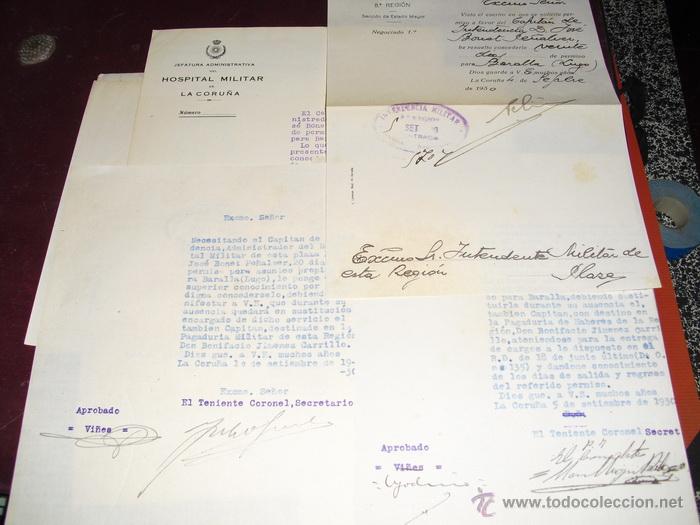 JEFATURA ADMINISTRATIVA
DEL
HOSPITAL MILITAR
DE
LA CORUÑA
Número
El Ca
nistrado
sé Bone
de perm
para Ba
Lo qu
presente
8.ª REGIÓN
Sección de Estado Mayor
Negociado 1.º
Excmo. Señor
Visto el escrito en que se solicita per-
miso a favor del Capitán de
Intendencia D. José
Bonet Peñalver,
he resuelto concederle veinte
días de permiso
para Baralla (Lugo)
Dios guarde a V. E muchos años
La Coruña 4 de Sepbre
de 1930
INTENDENCIA MILITAR
SET
Excmo Sr. Intendente Militar de
esta Región
Plaza
Excmo. Señor
Necesitando el Capitan de
dencia,Administrador del
tal Militar de esta plaza
José Bonet Peñalver, 20 dia
permiso para asuntos propi
ra Baralla(Lugo), le pongo
superior conocimiento por
digna concederselo,debiend
ifestar a V.E. que durante su
ausencia quedará en sustitución
encargado de dicho servicio el
tambien Capitan,destinado en la
Pagaduria Militar de esta Region
Don Bonifacio Jimenez Carrillo.
Dios gue. a V.E muchos años
La Coruña 1º de setiembre de 19-
-30
Excmo. Señor
El Teniente Coronel,Secretario
Aprobado
= Viñes =
so para Baralla,debiendo susti-
tuirle durante su ausencia el
tambien Capitan,con destino en
la Pagaduria de Haberes de la Region
Don Bonifacio Jimenez Carri
llo,ateniendose para la entrega
de cargos a lo dispuesto en el
R.D. de 18 de junio último(D.O.
135) y dandome conocimiento
de los dias de salida y regreso
del referido permiso.
Dios gue. a V.E. muchos años
La Coruña 5 de setiembre de 1930
El Teniente Coronel Secret
P. A.
Aprobado
= Viñes =
todocoleccion
www.todocoleccion.net